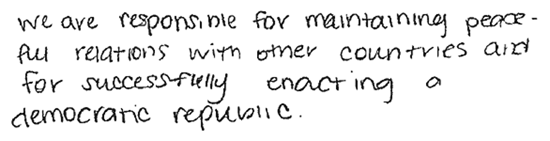 we are responsible for maintaining peace-
ful relations with other countries and
for successfully enacting a
democratic republic.